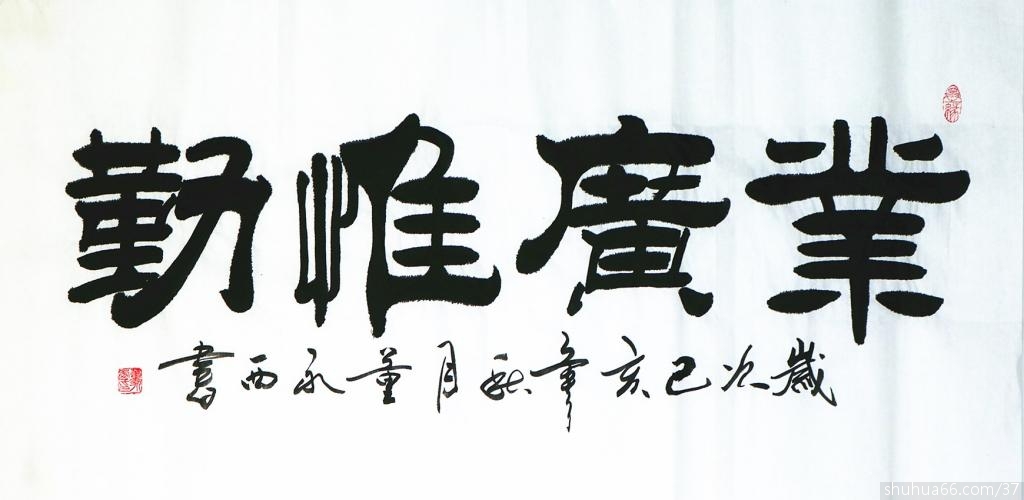 業廣惟勤
歲次己亥年秋月董永西書
shuhua66.com/37